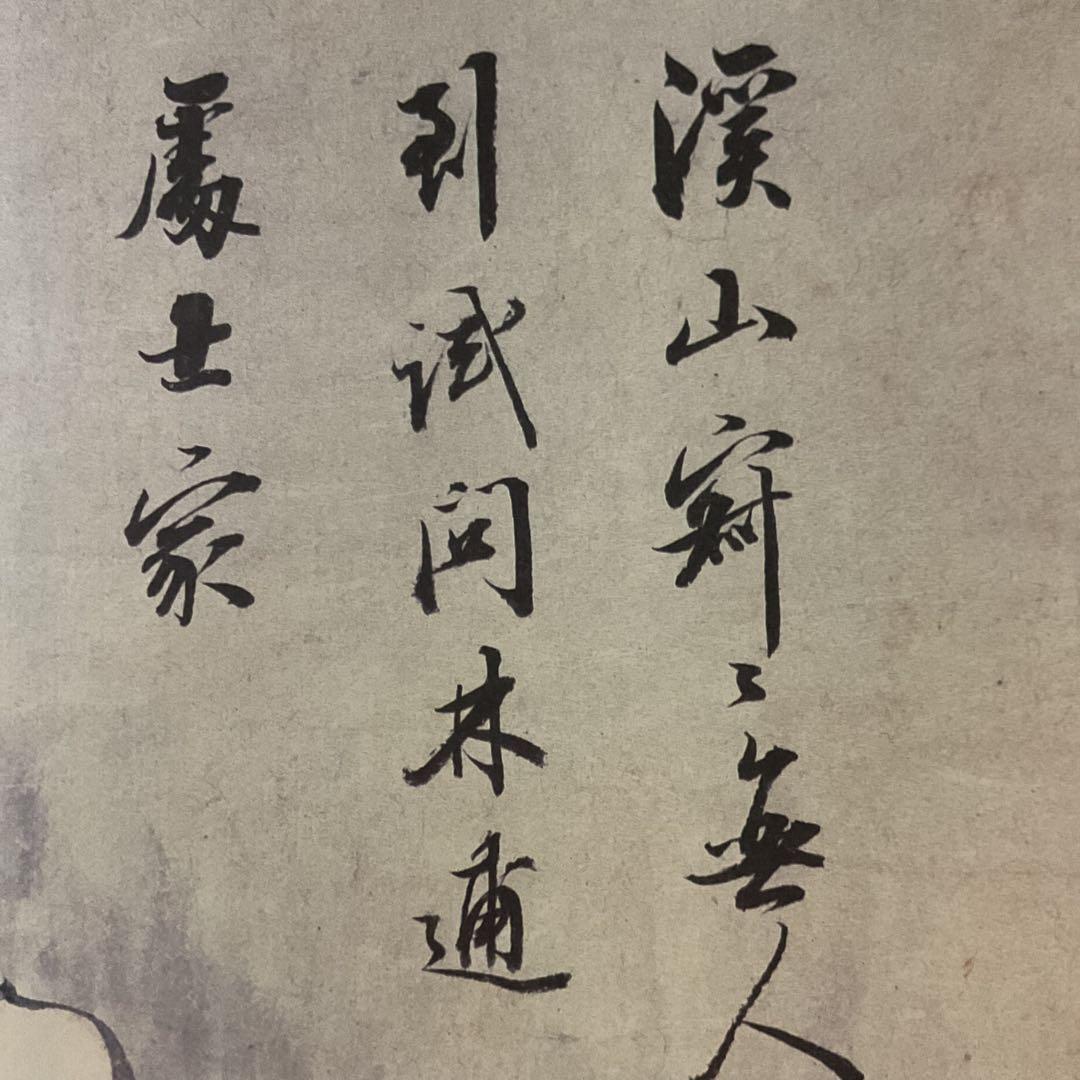 溪山寂〻無人
到試問林逋
處士家